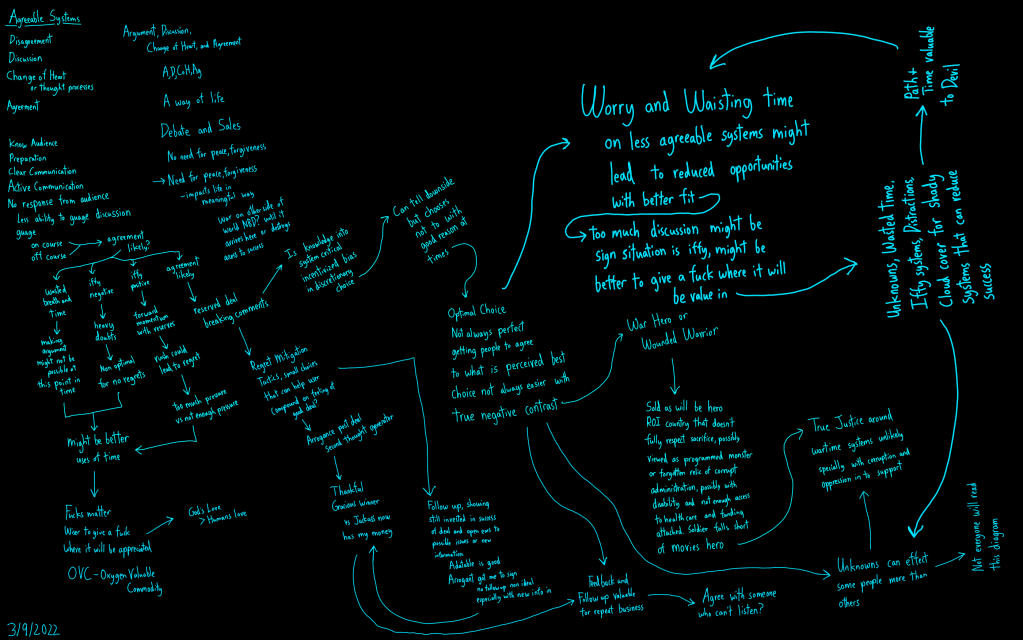 Agreeable Systems
Disagreement
Discussion
Change of Heart
or thought processes
Agreement
Know Audience
Preparation
Clear Communication
Active Communication
No response from audience
less ability to guage discussion
guage
on course
off course
agreement
likely?
wasted
breath and
time
iffy
negative
iffy
positive
agreement
likely
making
argument
might not be
possible at
this point in
time
heavy
doubts
Non optimal
for no regrets
forward
momentum
with reserves
rush could
lead to regret
too much pressure
vs not enough pressure
might be better
uses of time
Fucks matter
Wiser to give a fuck
where it will be appreciated
OVC - Oxygen Valuable
Commodity
God's Love
> Humans love
3/9/2022
Argument, Discussion,
Change of Heart, and Agreement
A,D,CoH,Ag
A way of life
Debate and Sales
No need for peace, forgiveness
→ Need for peace, forgiveness
- impacts life in
meaningful way
War on other side of
world NBD? until it
arrives here or destroys
access to success
reserved deal
breaking comments
Is knowledge into
system critical
incentivized bias
in discretionary
choice
Can tell downside
but chooses
not to with
good reason at
times
Regret Mitigation
Tactics, small choices
that can help user
compound on feeling of
good deal?
Arrogance post deal
second thought generator
Thankful
Gracious winner
vs Jackass now
has my money
Follow up, showing
still invested in success
of deal and open ears to
possible issues or new
information
Adaptable is good
Arrogant got me to sign
no follow up non ideal
especially with new info in
Optimal Choice
Not always perfect
getting people to agree
to what is perceived best
Choice not always easier with
true negative contrast
Feedback and
Follow up valuable
for repeat business
Agree with someone
who can't listen?
War Hero or
Wounded Warrior
Sold as will be hero
ROI country that doesn't
fully respect sacrifice, possibly
viewed as programmed monster
or forgotten relic of corrupt
administration, possibly with
disability and not enough access
to health care and funding
attacked. Soldier falls short
of movies hero
True Justice around
wartime systems unlikely
specially with corruption and
oppression in to support
Unknowns can effect
some people more than
others
Not everyone will read
this diagram
Worry and Waisting time
on less agreeable systems might
lead to reduced opportunities
with better fit
too much discussion might be
sign situation is iffy, might be
better to give a fuck where it will
be value in
Unknowns, Wasted Time,
Iffy systems, Distractions
Cloud cover for Shady
systems that can reduce
success
Path +
Time valuable
to Devil